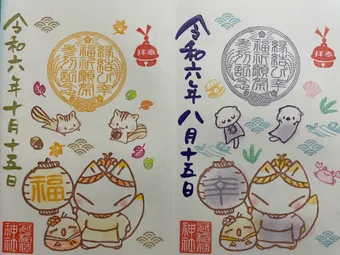 縁結び幸
福祈願祭
参列記念
令和六年十月十五日
福
神社
縁結び幸
福祈願祭
参列記念
令和六年八月十五日
幸
神社